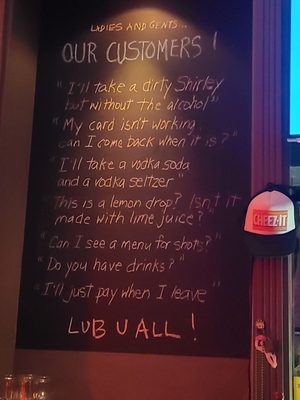 LADIES AND GENTS...
OUR CUSTOMERS!
"I'll take a dirty Shirley
but without the alcohol"
"My card isn't working,
can I come back when it is?"
"I'll take a vodka soda
and a vodka seltzer"
"This is a lemon drop? Isn't it
made with lime juice?"
"Can I see a menu for shots?"
"Do you have drinks?"
"I'll just pay when I leave"
LUB U ALL!
CHEEZ-IT